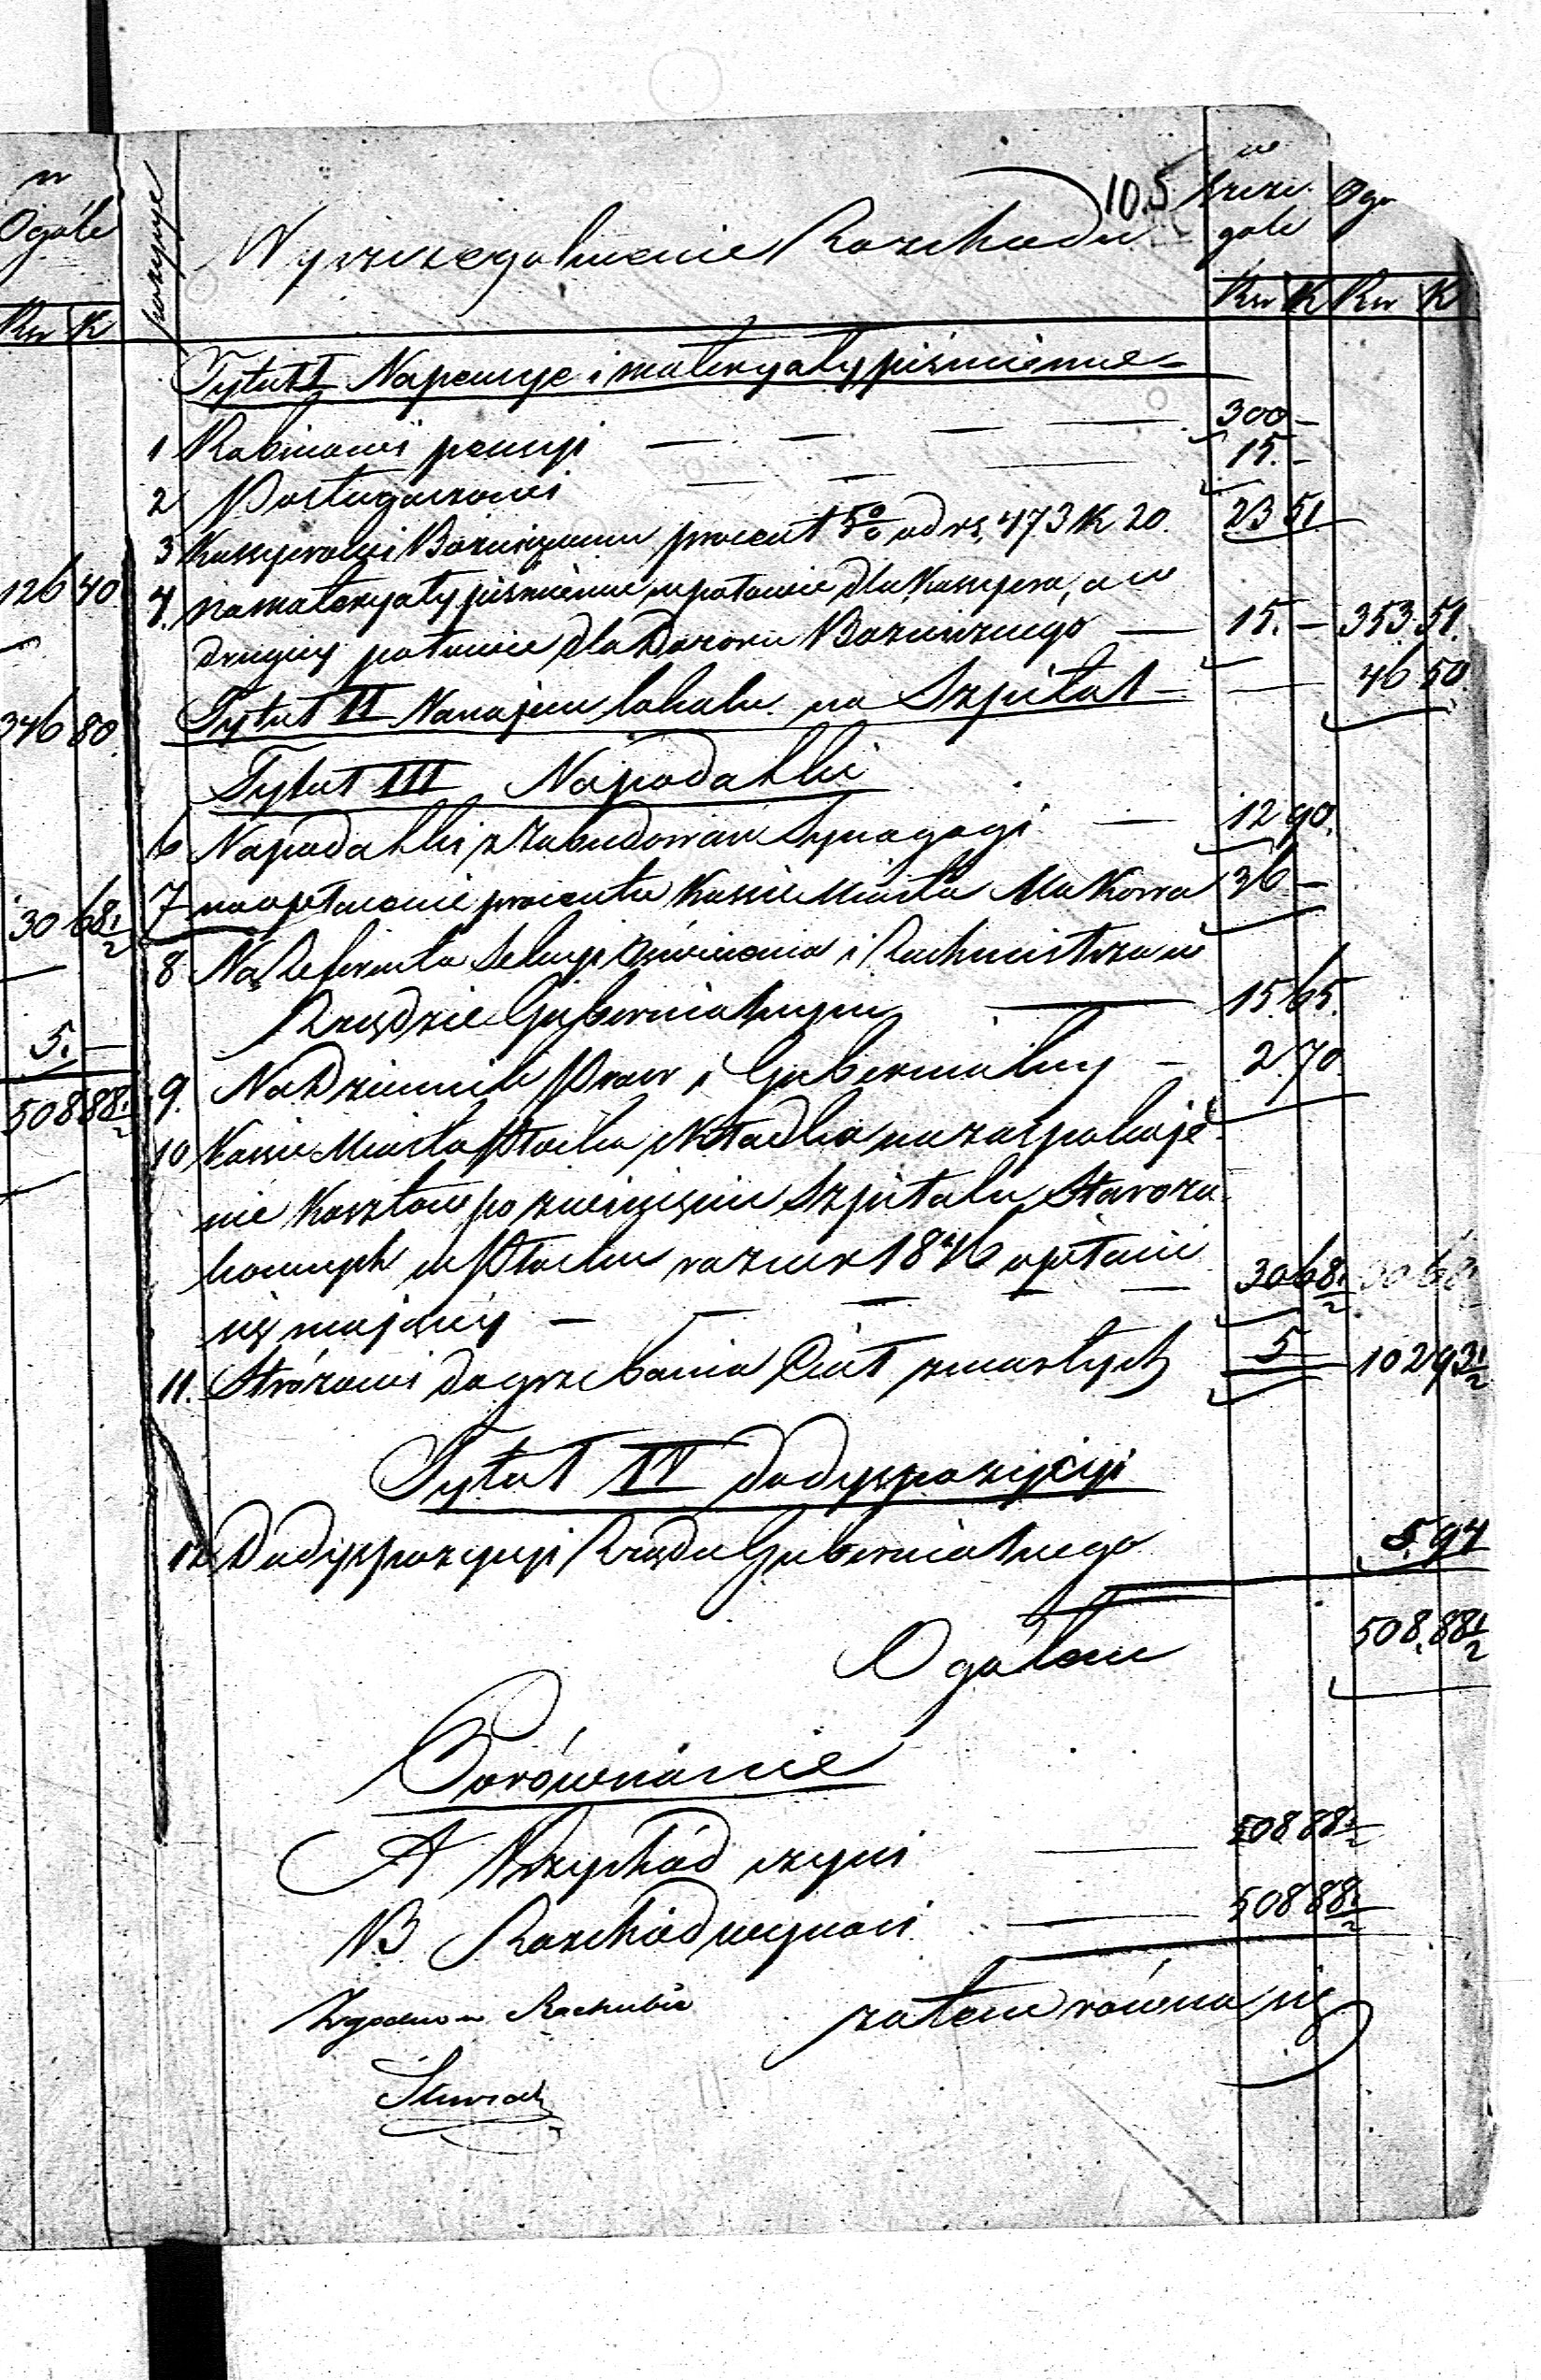 w
Ogóle
Rsr K
126 40
346 80
30 68 1/2
5. —
508 88 1/2
pozycye
105
Wyszczególnienie Rozchodu
w szcze- góle
Ogó
Rsr K Rsr K
Tytuł I Na pensye i materyały piśmienne
1 Rabinowi pensyi — — — — 300 —
2 Posługaczowi — — — 15. —
3 Kassyerowi Bożniczemu procent 5 0/0 od rs. 473 K 20. 23 51
4. na materyały piśmienne w połowie dla Kassyera, a w
drugiey połowie dla Dozoru Bożnicznego — 15. — 353 51.
Tytuł II Na najem lokalu na Szpital — — 46 50
Tytuł III Na podatki
6 Na podatki z zabudowań Synagogi — 12 90.
7 na opłacenie procentu Kassie Miasta Makowa 36 —
8 Na Referenta Sekcyi i Rachmistrza w
Rządzie Gubernialnym — 15. 65.
9. Na Dziennik Praw i Gubernialny — 2. 70
10 Kassie Miasta Płocka składka na zaspokoje-
nie kosztów po zniesieniu Szpitalu Staroza-
konnych w Płocku raz w r 1846 opłacić
się mającey — — — — — 30 68 1/2 30 68 1/2
11. Stróżowi do grzebania Ciał zmarłych 5 — 102 93 1/2
Tytuł IV do dyspozycyi
12 Do dyspozycyi Rządu Gubernialnego 5. 94
Ogółem 508. 88 1/2
Porównanie
A Przychód czyni — 508 88 1/2
B Rozchód wynosi — 508 88 1/2
zatem równa się
Zgodno w Rachubie